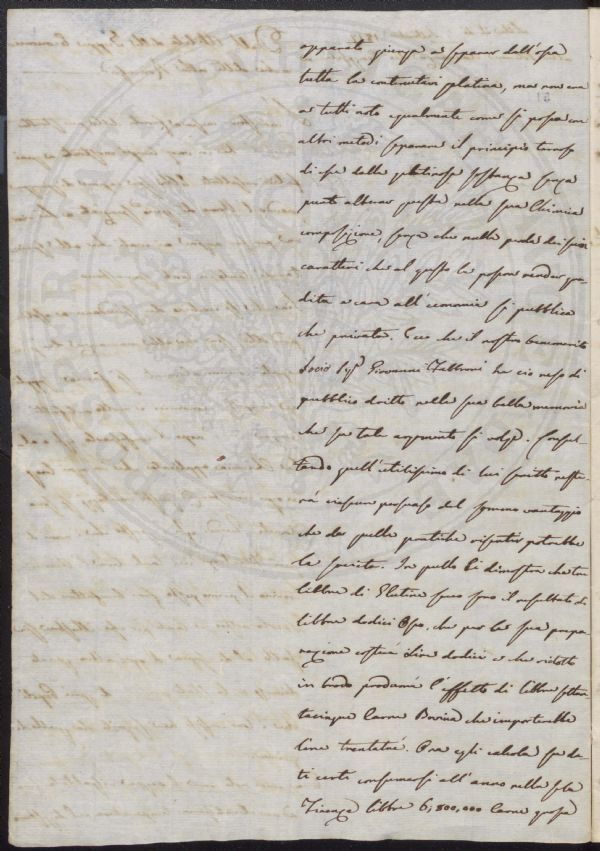 apparato giunge a separar dall'ossa
tutta la contenutavi gelatina, ma non era
a tutti noto egualmente come si possa con
altri metodi separare il principio terroso
di esse dalla gelatinosa sostanza senza
punto alterar questa nella sua Chimica
composizione, senza che nulla perda dei suoi
caratteri che al gusto la possono render gra-
dita e cara all'economia sì pubblica
che privata. Ecco che il nostro benemerito
Socio Sigr Giovanni Fabbroni ha ciò reso di
pubblico dritto nella sua bella memoria
che su tale argomento si volge. Consul-
tando quell'utilissimo di lui scritto reste-
rà ciascun persuaso del sommo vantaggio
che da quelle pratiche risentir potrebbe
la società. In quello Ei dimostra che tre
libbre di Glutine secco sono il resultato di
libbre dodici Ossa, che per la sua prepa-
razione costerà Lire dodici e che ridotto
in brodo produrrà l'effetto di libbre settan-
tacinque Carne Bovina che importerebbe
Lire trentatrè. Ora egli calcola su da-
ti certi consumarsi all'anno nella sola
Firenze libbre 6,500,000 Carne grossa